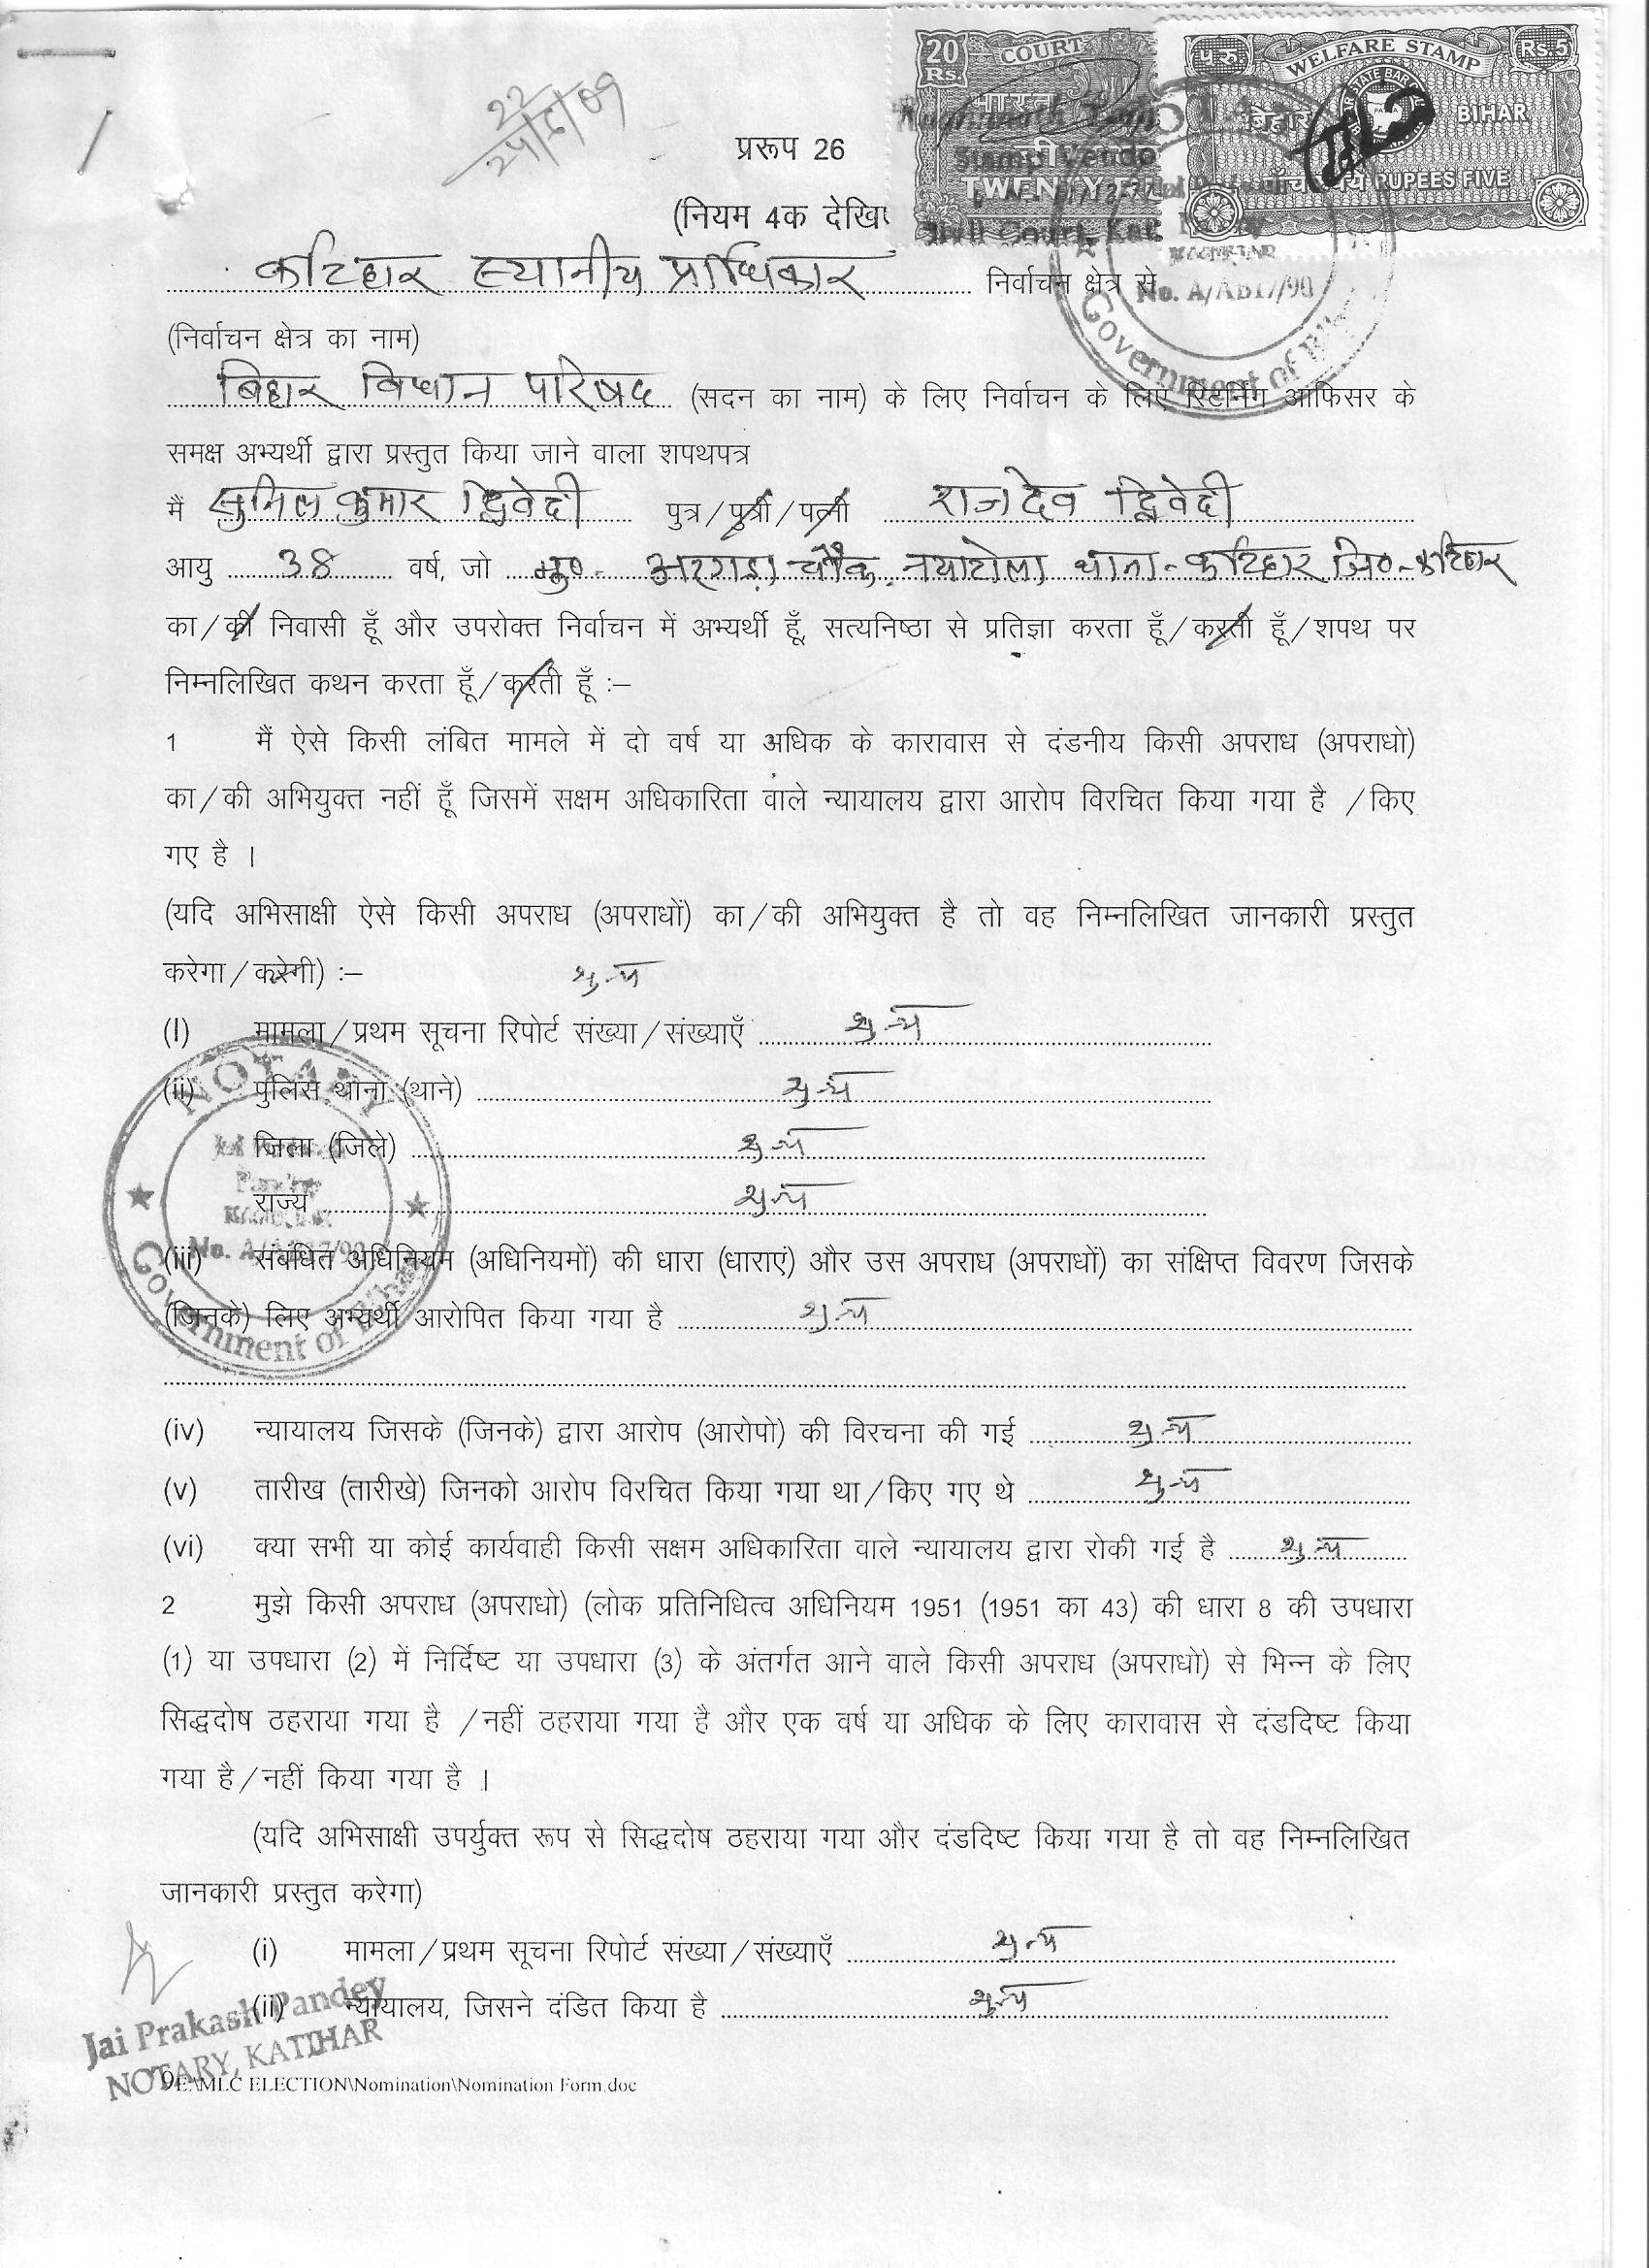 20 Rs. COURT
भारत
TWENTY
प रु. WELFARE STAMP Rs. 5
बिहार BIHAR
RUPEES FIVE
Stamp Vendo
Civil Court,
No. A/AB17/90
Government of
22
प्ररूप 26
(नियम 4क देखि
कटिहार स्थानीय प्राधिकार निर्वाचन क्षेत्र से
(निर्वाचन क्षेत्र का नाम)
बिहार विधान परिषद (सदन का नाम) के लिए निर्वाचन के लिए रिटर्निंग ऑफिसर के
समक्ष अभ्यर्थी द्वारा प्रस्तुत किया जाने वाला शपथपत्र
मैं सुनिल कुमार द्विवेदी पुत्र/पुत्री/पत्नी राजदेव द्विवेदी
आयु 38 वर्ष, जो मु०- अरगड़ा चौक, नयाटोला थाना-कटिहार जि०-कटिहार
का/की निवासी हूँ और उपरोक्त निर्वाचन में अभ्यर्थी हूँ, सत्यनिष्ठा से प्रतिज्ञा करता हूँ/करती हूँ/शपथ पर
निम्नलिखित कथन करता हूँ/करती हूँ :–
1 मैं ऐसे किसी लंबित मामले में दो वर्ष या अधिक के कारावास से दंडनीय किसी अपराध (अपराधो)
का/की अभियुक्त नहीं हूँ जिसमें सक्षम अधिकारिता वाले न्यायालय द्वारा आरोप विरचित किया गया है /किए
गए है ।
(यदि अभिसाक्षी ऐसे किसी अपराध (अपराधों) का/की अभियुक्त है तो वह निम्नलिखित जानकारी प्रस्तुत
करेगा/करेगी) :– शुन्य
(I) मामला/प्रथम सूचना रिपोर्ट संख्या/संख्याएँ शुन्य
(ii) पुलिस थाना (थाने) शुन्य
जिला (जिले) शुन्य
राज्य शुन्य
(iii) सबंधित अधिनियम (अधिनियमों) की धारा (धाराएं) और उस अपराध (अपराधों) का संक्षिप्त विवरण जिसके
(जिनके) लिए अभ्यर्थी आरोपित किया गया है शुन्य
NOTARY
Pandey
No. A/AB17/90
Government of Bihar
(iv) न्यायालय जिसके (जिनके) द्वारा आरोप (आरोपो) की विरचना की गई शुन्य
(v) तारीख (तारीखे) जिनको आरोप विरचित किया गया था/किए गए थे शुन्य
(vi) क्या सभी या कोई कार्यवाही किसी सक्षम अधिकारिता वाले न्यायालय द्वारा रोकी गई है शुन्य
2 मुझे किसी अपराध (अपराधो) (लोक प्रतिनिधित्व अधिनियम 1951 (1951 का 43) की धारा 8 की उपधारा
(1) या उपधारा (2) में निर्दिष्ट या उपधारा (3) के अंतर्गत आने वाले किसी अपराध (अपराधो) से भिन्न के लिए
सिद्धदोष ठहराया गया है /नहीं ठहराया गया है और एक वर्ष या अधिक के लिए कारावास से दंडदिष्ट किया
गया है/नहीं किया गया है ।
(यदि अभिसाक्षी उपर्युक्त रूप से सिद्धदोष ठहराया गया और दंडदिष्ट किया गया है तो वह निम्नलिखित
जानकारी प्रस्तुत करेगा)
(i) मामला/प्रथम सूचना रिपोर्ट संख्या/संख्याएँ शुन्य
(ii) न्यायालय, जिसने दंडित किया है शुन्य
Jai Prakash Pandey
NOTARY, KATIHAR
E:\MLC ELECTION\Nomination\Nomination Form.doc